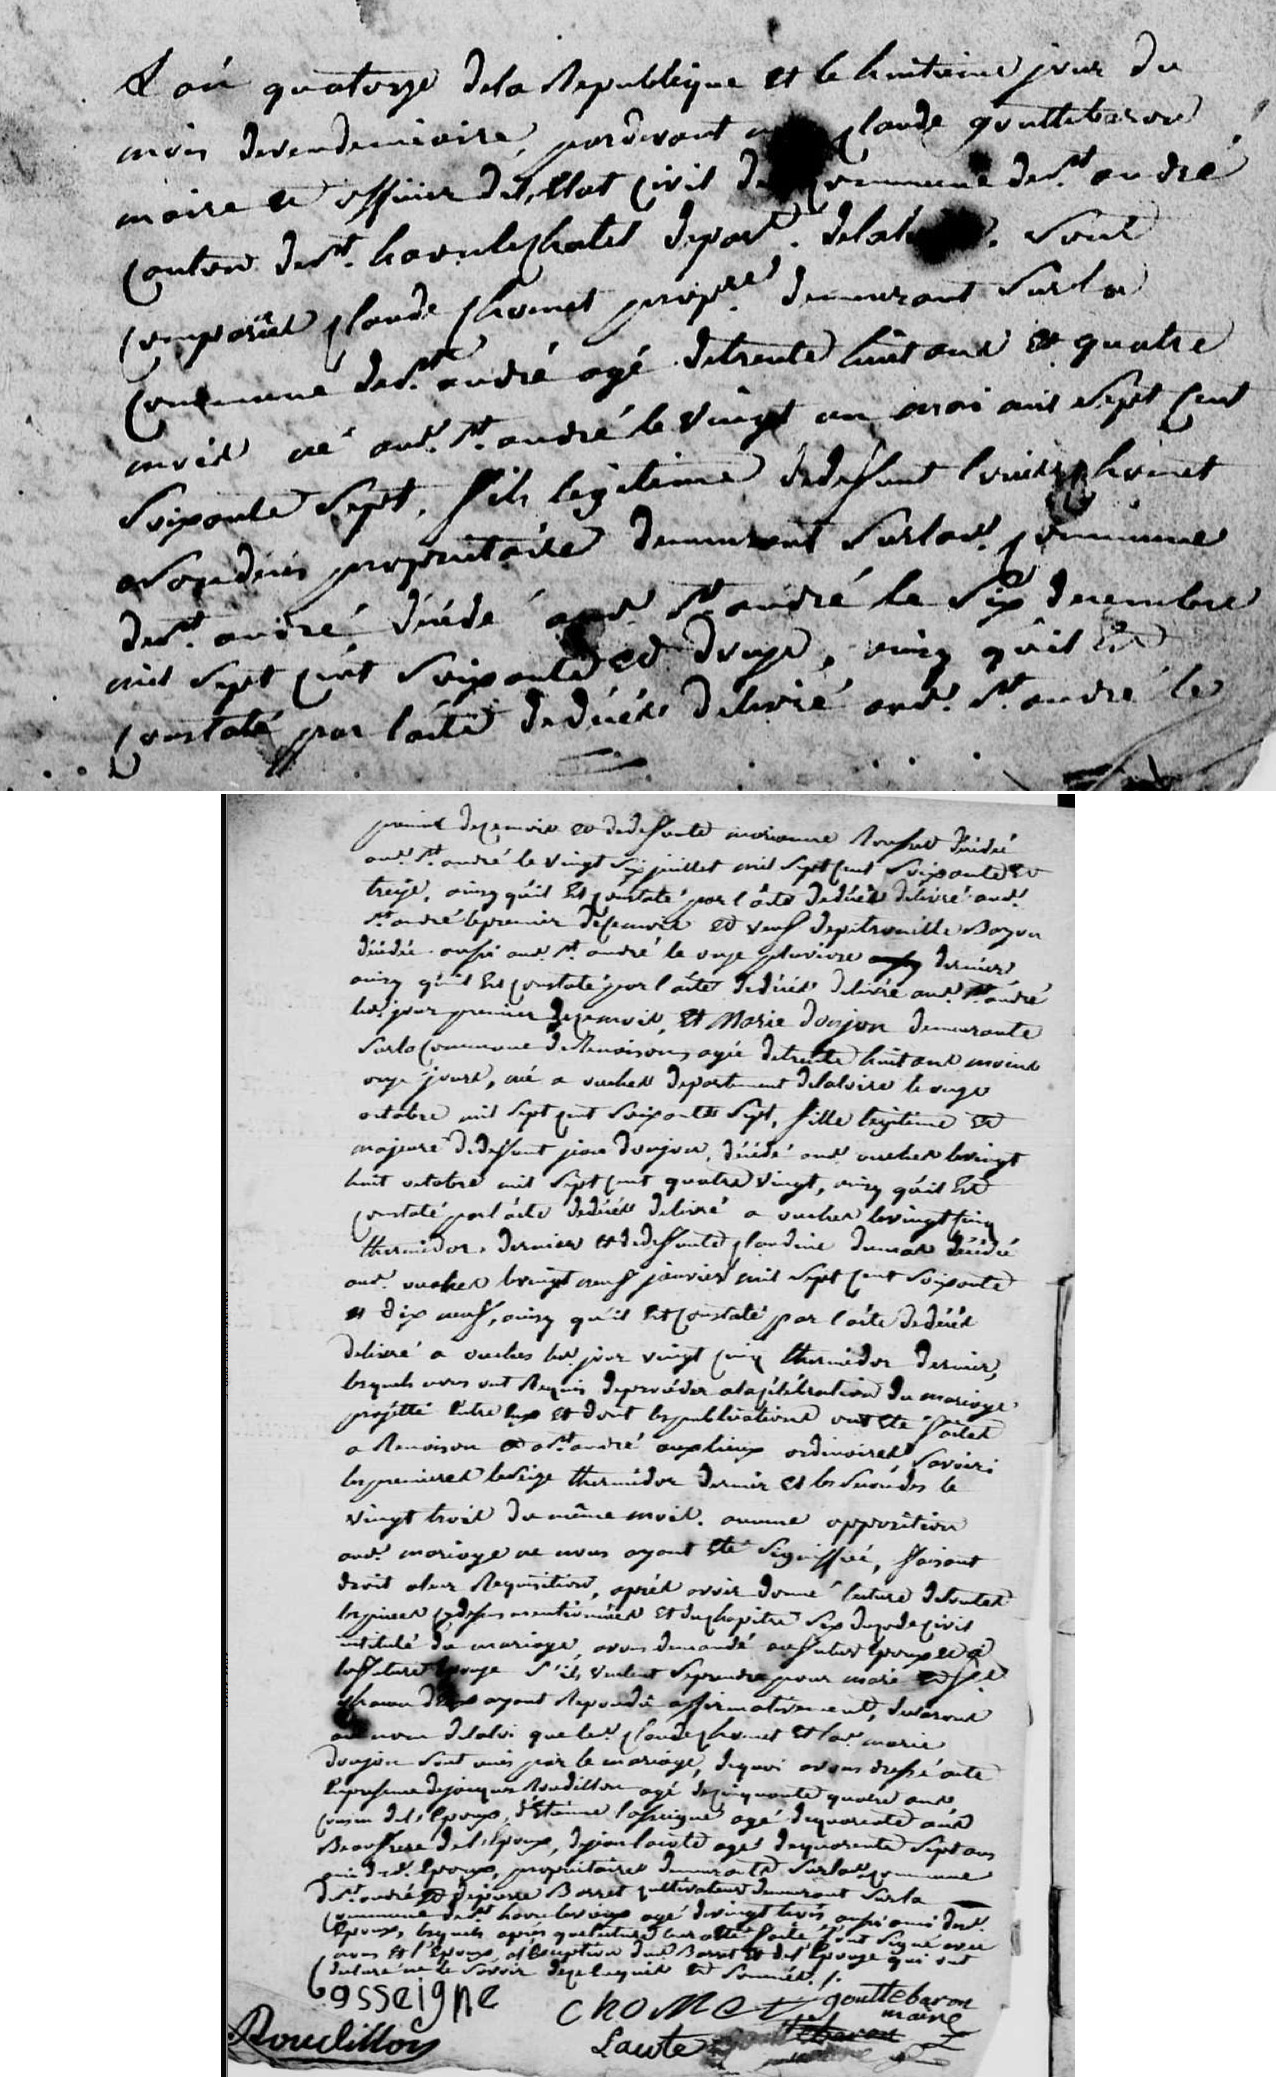 L'an quatorze dela Republique et le huitieme jour du
mois devendemiaire, pardevant Claude gouttebaron
maire et officier del'Etat Civil de Commune de St andré
Canton de St. haonlechatel depart. dela sont
Comparus Claude Chomet proprre demeurant Surla
Commune de St andré agé detrente huit ans et quatre
mois né aud. St andré le vingt un mai mil Sept Cent
Soixante Sept, fils legitime dedeffunt Chomet
propriétaire demeurant Surlad. Commune
de St andré décédé aud. St andré le Six decembre
mil Sept Cent Soixante et douze, ainsy qu'il Est
Constaté par l'acte dedécés délivré aud. St. andré le
premier decemois et dedeffunte marianne décédé
aud. St andré le vingt Six juillet mil Sept Cent Soixante et
treize, ainsy qu'il Est Constaté par l'acte dedécés délivré aud.
St andré lepremier decemois et veuf depetronille Bozon
décédée aussi aud. St andré le onze pluviose dernier
ainsy qu'il Est Constaté par l'acte dedécés délivré aud. St andré
led. jour premier decemois, Et Marie donjon demeurante
Surla Commune deRenaison, agée detrente huit ans moins
onze jours, né a ouches departement delaloire le onze
octobre mil Sept Cent Soixante Sept, fille legitime et
majeure dedeffunt jean donjon, décédé aud. ouches levingt
huit octobre mil Sept Cent quatre vingt, ainsy qu'il Est
Constaté par l'acte dedécés délivré a ouches levingt Cinq
thermidor dernier et dedeffunte Claudine dumas décédée
aud. ouches levingt neuf janvier mil Sept Cent Soixante
et dix neuf, ainsy qu'il Est Constaté par l'acte dedécés
délivré a ouches led. jour vingt Cinq thermidor dernier,
lesquels nous ont Requis deprocéder alaCélébration du mariage
projetté Entre Eux et dont lespublications ont Eté faites
a Renaison et a St andré auxlieux ordinaires, Savoir:
lespremieres leseize thermidor dernier et les Secondes le
vingt trois du même mois. aucune opposition
aud. mariage ne nous ayant Eté Signiffiée, faisant
droit aleur Requisition, aprés avoir donné lecture detoutes
lespieces Cydessus mentionnées et duchapitre Six ducodeCivil
intitulé du mariage, avons demandé aufutur Epoux et a
lafuture Epouze s'ils veulent Seprendre pour mari et fe
chacun d'eux ayant Repondu affirmativement, declarons
au nom delaloi que led. Claude Chomet et lad. marie
donjon Sont unis par le mariage, dequoi avons dressé acte
Enpresence dejacques Roudillon agé decinquante quatre ans
Cousin del'Epoux, d'Etienne lasseigne agé dequarante ans
Beaufrere del'Epoux, dejean laute agé dequarante Sept ans
ami dud. Epoux, propriétaires demeurants Surlad. Commune
de St andré et depierre Barret Cultivateur demeurant Surla
Commune de St. haonlevieux agé devingt trois, aussi ami dud.
Epoux, lesquels aprés quelecture leur a Eté faite ont Signé avec
nous et l'Epoux, al'Exception dud. Barret et del'Epouze qui ont
declaré ne le Savoir decelequis et Sommés ./.
Gasseigne
CHOMET gouttebaron
maire
Roudillon
Laute